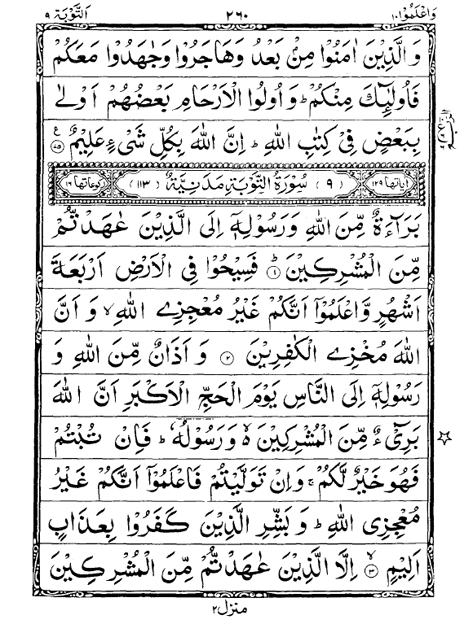 التَّوْبَة ٩ ٢٦٠ وَاعْلَمُوْٓا ١٠
وَ الَّذِيْنَ اٰمَنُوْا مِنْۢ بَعْدُ وَهَاجَرُوْا وَجٰهَدُوْا مَعَكُمْ
فَاُولٰٓئِكَ مِنْكُمْ ؕ وَ اُولُوا الْاَرْحَامِ بَعْضُهُمْ اَوْلٰى
بِبَعْضٍ فِيْ كِتٰبِ اللّٰهِ ؕ اِنَّ اللّٰهَ بِكُلِّ شَيْءٍ عَلِيْمٌ ﴿٧٥﴾ ع
اٰيَاتُهَا ١٢٩ (٩) سُوْرَةُ التَّوْبَةِ مَدَنِيَّةٌ (١١٣) رُكُوْعَاتُهَا ١٦
بَرَآءَةٌ مِّنَ اللّٰهِ وَرَسُوْلِهٖٓ اِلَى الَّذِيْنَ عٰهَدْتُّمْ
مِّنَ الْمُشْرِكِيْنَ ؕ﴿١﴾ فَسِيْحُوْا فِي الْاَرْضِ اَرْبَعَةَ
اَشْهُرٍ وَّاعْلَمُوْٓا اَنَّكُمْ غَيْرُ مُعْجِزِي اللّٰهِ ۙ وَ اَنَّ
اللّٰهَ مُخْزِي الْكٰفِرِيْنَ ﴿٢﴾ وَ اَذَانٌ مِّنَ اللّٰهِ وَ
رَسُوْلِهٖٓ اِلَى النَّاسِ يَوْمَ الْحَجِّ الْاَكْبَرِ اَنَّ اللّٰهَ
بَرِيْٓءٌ مِّنَ الْمُشْرِكِيْنَ ۙ۬ وَرَسُوْلُهٗ ؕ فَاِنْ تُبْتُمْ
فَهُوَ خَيْرٌ لَّكُمْ ۚ وَاِنْ تَوَلَّيْتُمْ فَاعْلَمُوْٓا اَنَّكُمْ غَيْرُ
مُعْجِزِي اللّٰهِ ؕ وَ بَشِّرِ الَّذِيْنَ كَفَرُوْا بِعَذَابٍ
اَلِيْمٍ ۙ﴿٣﴾ اِلَّا الَّذِيْنَ عٰهَدْتُّمْ مِّنَ الْمُشْرِكِيْنَ
منزل ٢